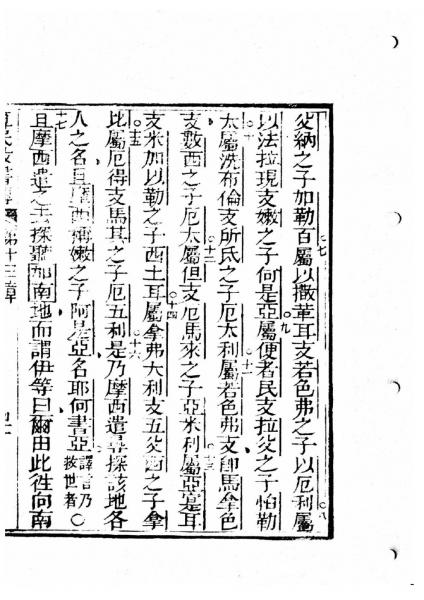 父納之子加勒百屬○七以撒革耳支若色弗之子以厄利屬○八
以法拉現支嫩之子何是亞屬○九便者民支拉父之子怕勒
太屬○十洗布倫支所氏之子厄大利屬○十一若色弗支即馬拿色
支數西之子厄太屬○十二但支厄馬來之子亞米利屬○十三亞寔耳
支米加以勒之子西土耳屬○十四拿弗大利支五父西之子拿
比屬○十五厄得支馬其之子厄五利○十六是乃摩西遣尋探該地各
人之名且摩西稱嫩之子阿是亞名耶何書亞譯言乃救世者○
十七且摩西遣之徃探加南地而謂伊等曰爾由此徃向南